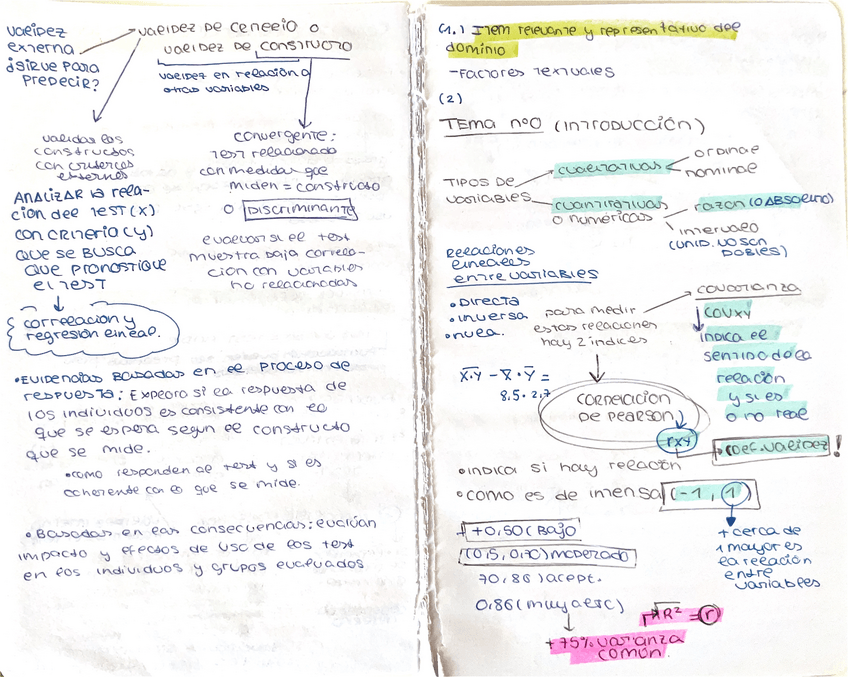 validez
externa
¿sirve para
predecir?
validez de criterio o
validez de constructo
validez en relación a
otras variables
validar los
constructos
con criterios
externos
ANALIZAR la rela-
ción del TEST (X)
con CRITERIO (Y)
QUE SE BUSCA
QUE PRONOSTIQUE
el TEST
correlación y
regresión lineal.
convergente:
Test relacionado
con medidas que
miden = constructo
o DISCRIMINANTE
evaluar si el test
muestra baja correla-
ción con variables
no relacionadas
• EVIDENCIAS BASADAS EN EL PROCESO DE
respuesta: Exploro si la respuesta de
los individuos es consistente con lo
que se espera según el constructo
que se mide.
• como responden al test y si es
coherente con lo que se mide.
• Basadas en las consecuencias: evalúan
impacto y efectos de uso de los test
en los individuos y grupos evaluados
(1.1 Item relevante y representativo del
dominio
- Factores Textuales
(2)
TEMA nº0 (INTRODUCCIÓN)
TIPOS DE
VARIABLES
cualitativas
ordinal
nominal
cuantitativas
o numéricas
razón (0 ABSOLUTO)
intervalo
(UNID. NO SON
DOBLES)
Relaciones
lineales
entre variables
• DIRECTA
• inversa
• nula.
para medir
estas relaciones
hay 2 índices
covarianza
COVxy
INDICA el
sentido de la
relación
y si es
o no real
X·Y − X · Y =
8.5 · 2.7
CORRELACIÓN
DE PEARSON
rxy
coef. validez!
• INDICA si hay relación
• como es de imensa (-1, 1)
+ cerca de
1 mayor es
la relación
entre
variables
+0,50 (Bajo
(0,5, 0,70) moderado
70.86) acept.
0.86 (muy alto)
√R² = r
+75% varianza
común.